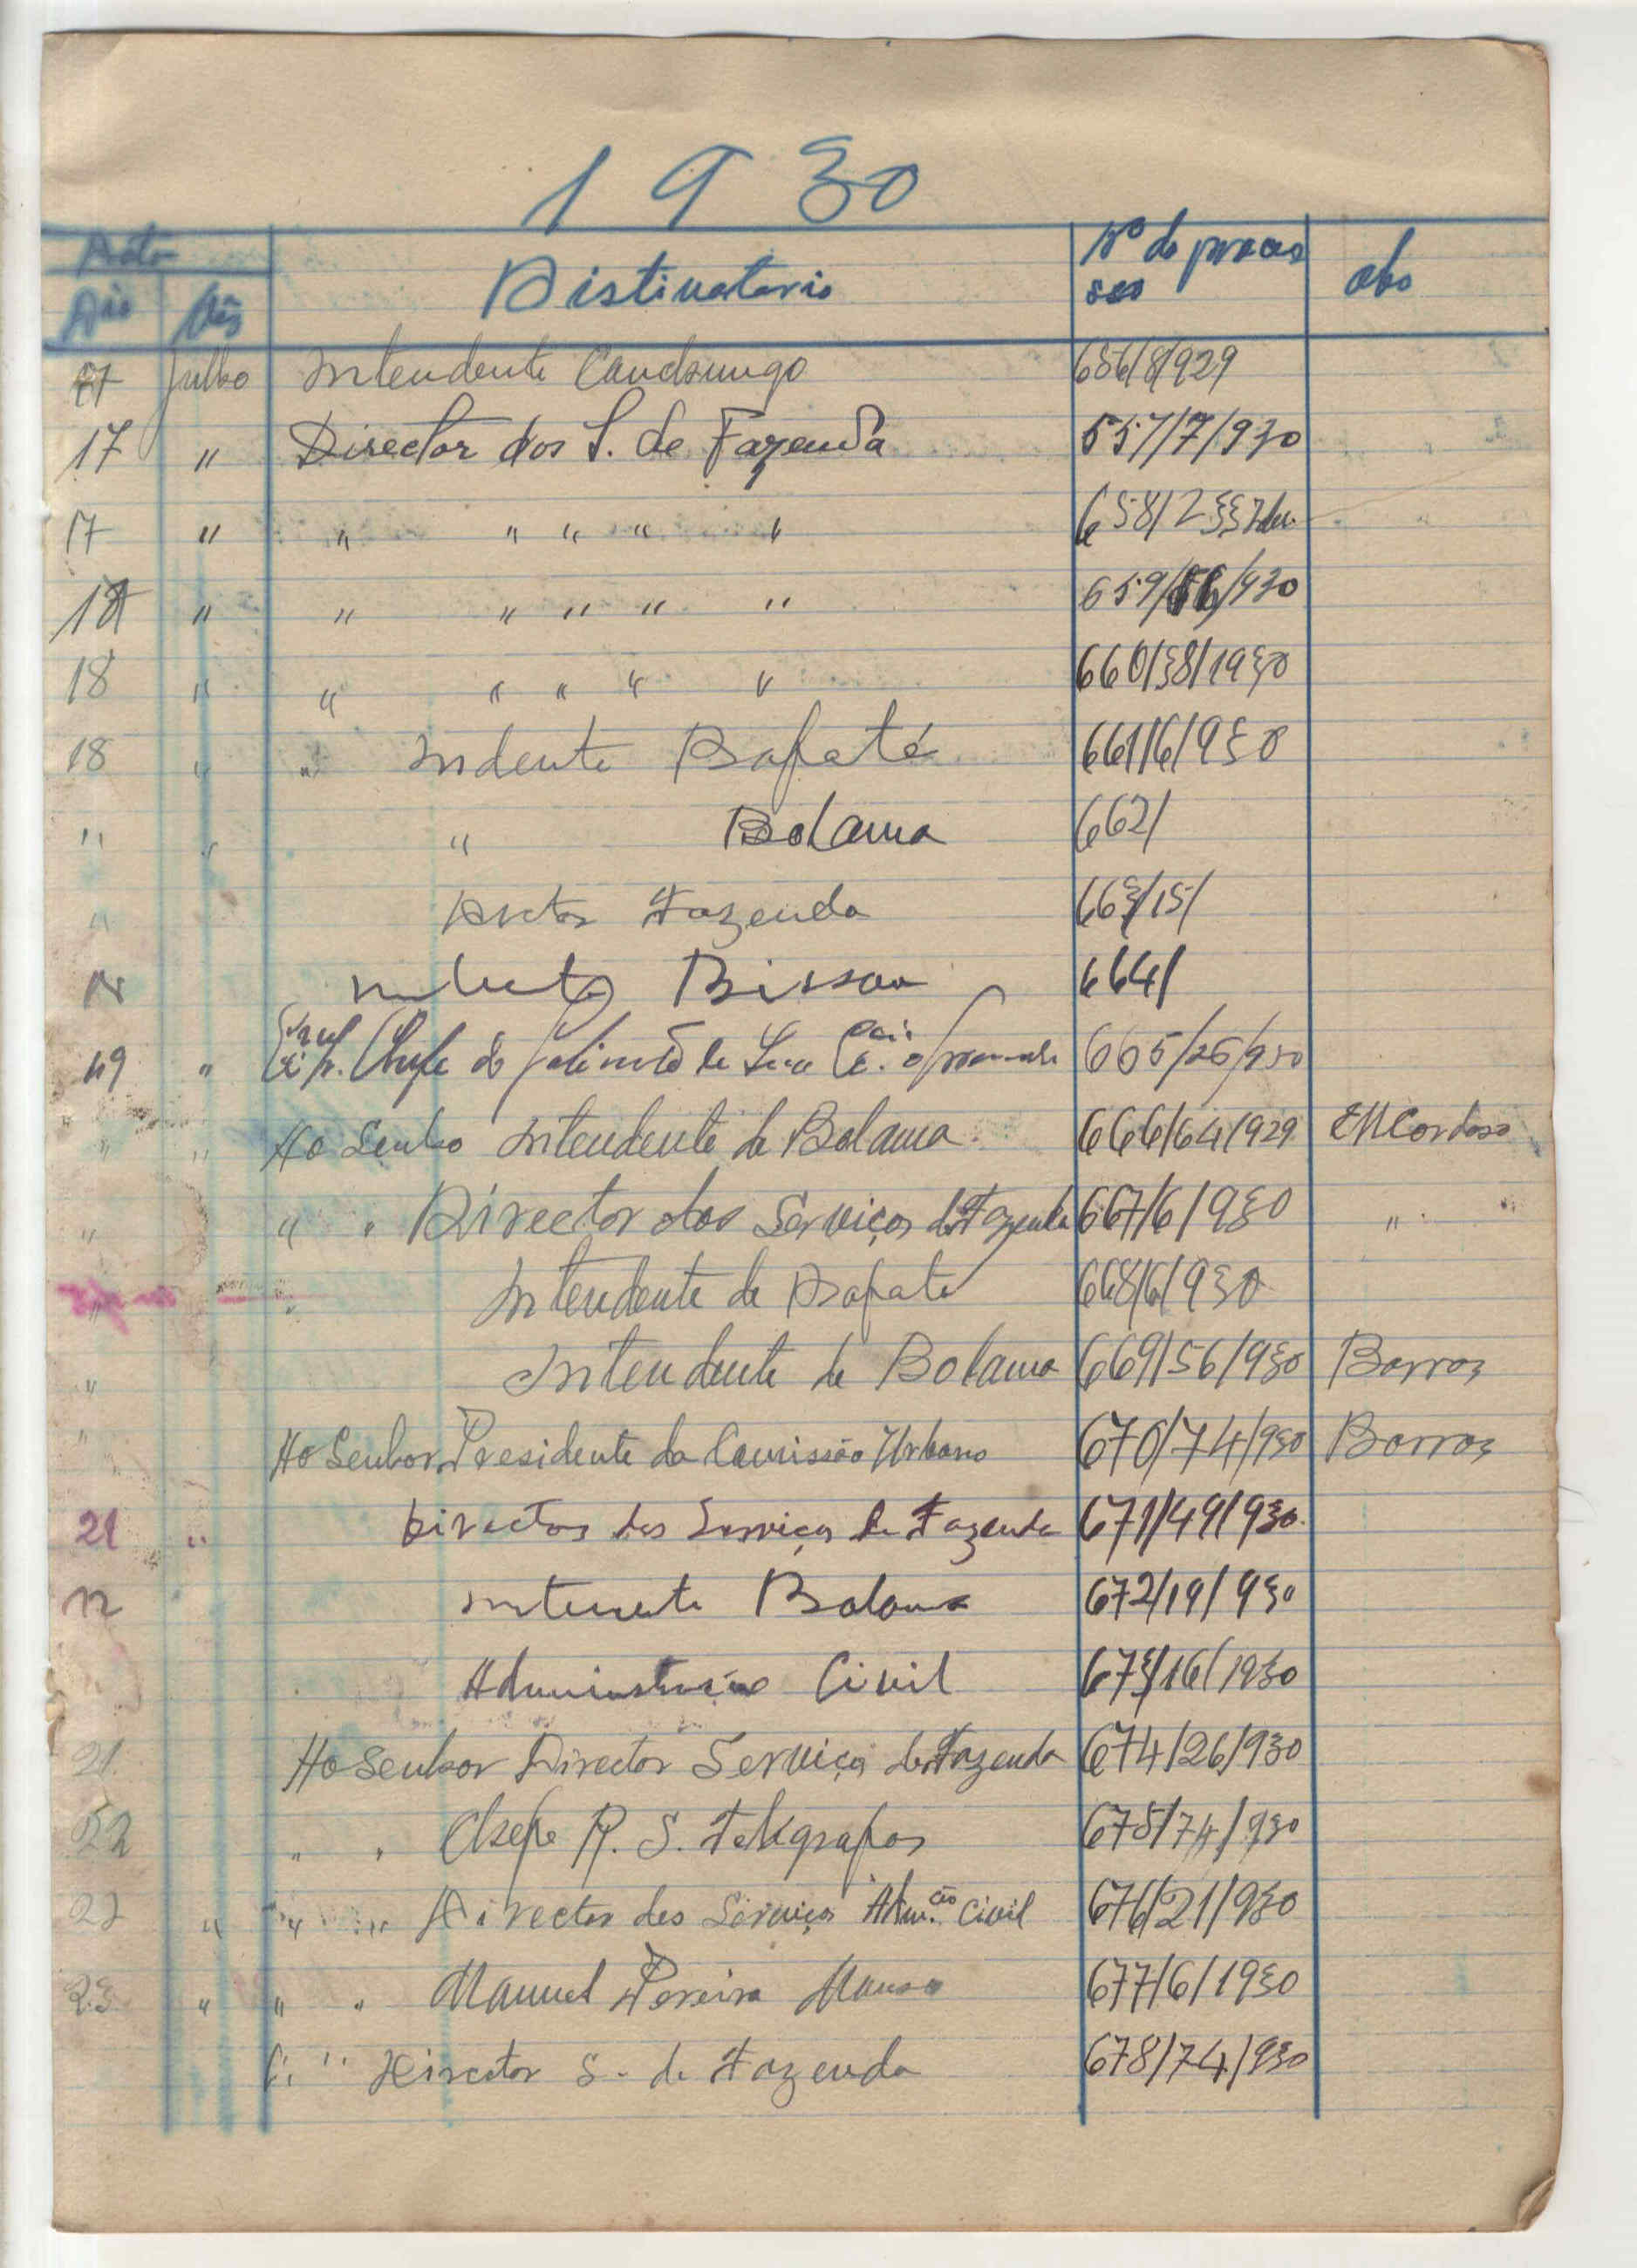 1930
Data
Dia Mês Distinatario Nº do proces
sos obs
17 Julho Intendente 656/8/929
17 " Director dos S. de Fazenda 557/7/930
17 " " " " " " 658/
18 " " " " " " 659/ /930
18 " " " " " " 660/38/1930
18 " " Indente Bafatá 661/6/930
" " " Bolama 662/
" Fazenda 663/15/
Bissau 664/
19 " Chefe do 665/26/930
" " Ao Senho Intendente de Bolama 666/64/929 Cardoso
" " " Director dos Serviços de Fazenda 667/6/930 "
" " Intendente de Bafata 668/6/930
" Intendente de Bolama 669/56/930 Barros
" Ao Senhor Presidente da Comissão Urbano 670/74/930 Barros
21 " Director dos Serviços de Fazenda 671/49/930
Bolama 672/19/930
Administração Civil 673/16/1930
21 Ao Senhor Director Serviços de Fazenda 674/26/930
22 " " Chefe R. S. Telegrafos 675/74/930
22 " " " Director dos Serviços Adm.ção Civil 676/21/930
23 " " " Manuel Pereira 677/6/1930
" " Director S. de Fazenda 678/74/930